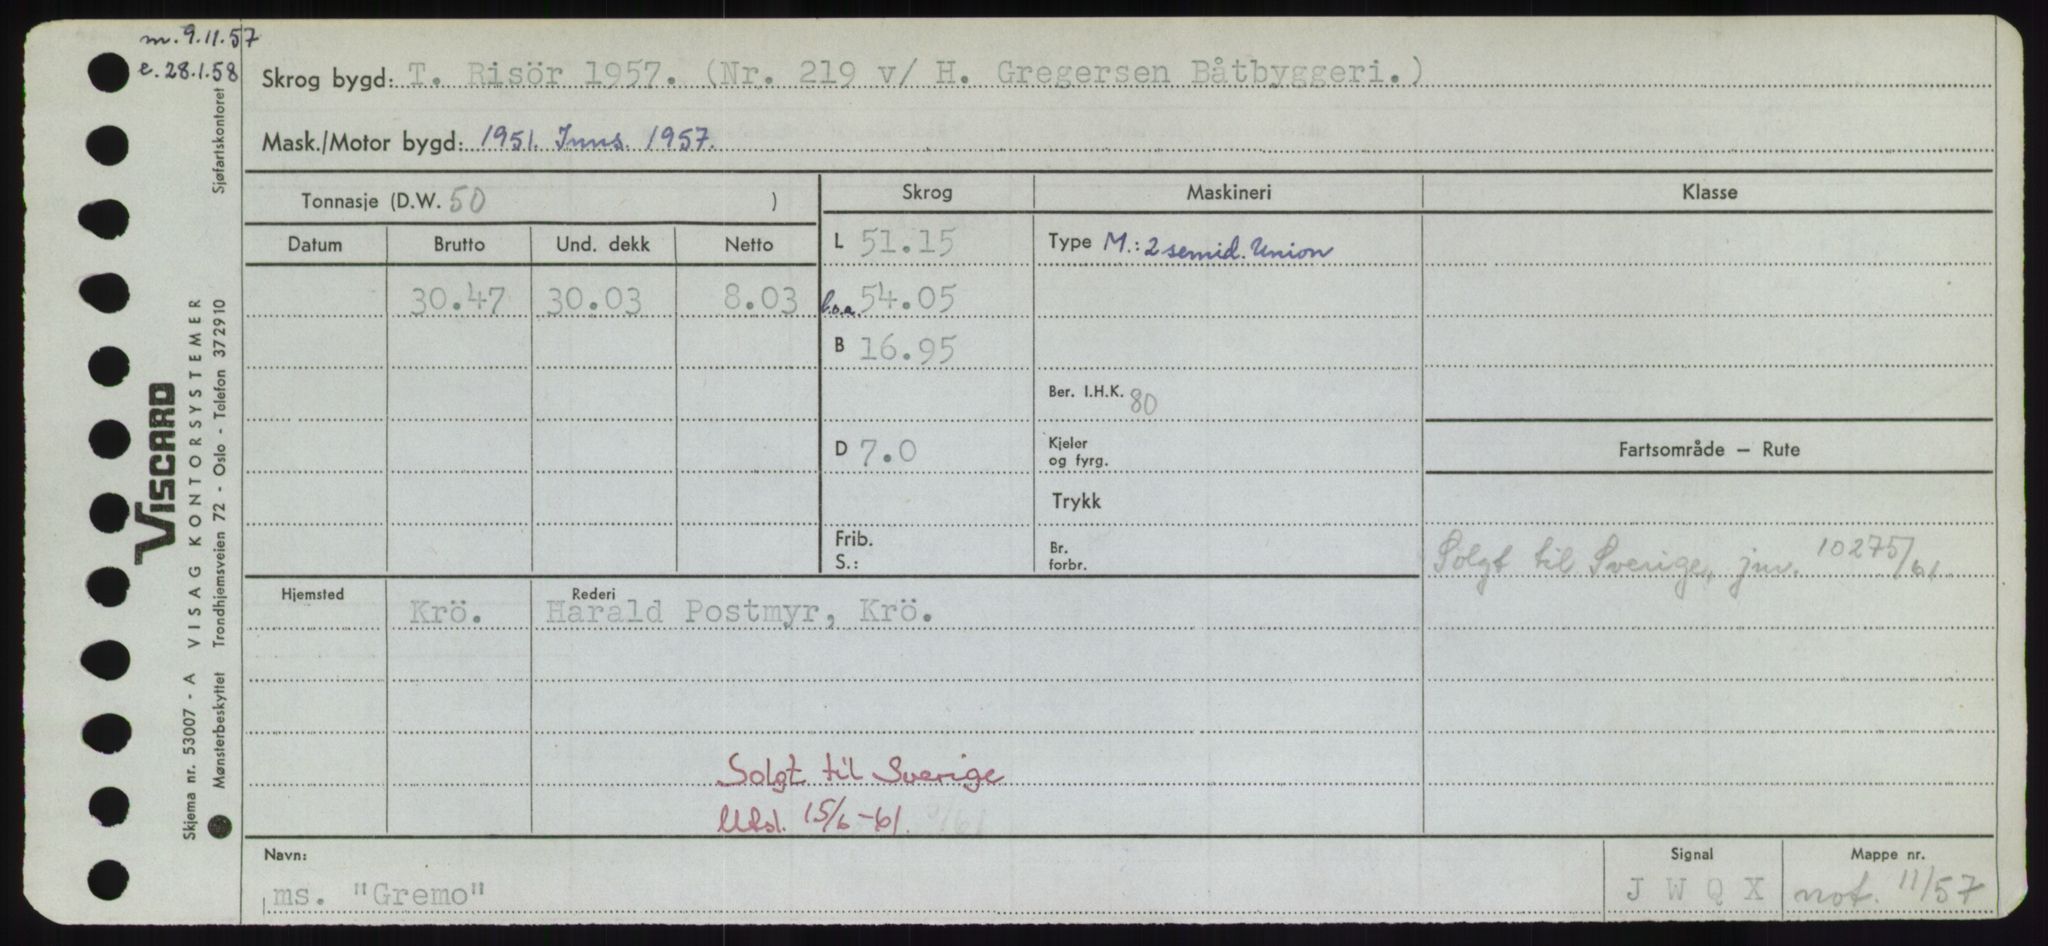 m. 9.11.57
e. 28.1.58
Skrog bygd: T. Risör 1957. (Nr. 219 v/ H. Gregersen Båtbyggeri.)
Mask./Motor bygd: 1951. Inns. 1957.
Tonnasje (D.W. 50 )
Skrog Maskineri Klasse
Datum Brutto Und. dekk Netto
L 51.15 Type M.: 2 semid. Union
30.47 30.03 8.03 l.o.a. 54.05
B 16.95
Ber. I.H.K. 80
D 7.0 Kjeler og fyrg.
Fartsområde — Rute
Trykk
Frib.
S.:
Br. forbr.
Solgt til Sverige, jnr. 10275/61
Hjemsted Rederi
Krö. Harald Postmyr, Krö.
Solgt til Sverige
Utsl. 15/6-61.
Navn: Signal Mappe nr.
ms. "Gremo" J W Q X not. 11/57
Skjema nr. 53007 - A VISAG KONTORSYSTEMER
VISCARD
Mønsterbeskyttet Trondhjemsveien 72 - Oslo - Telefon 372910 Sjøfartskontoret